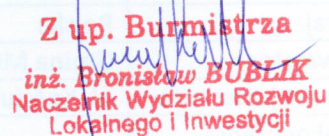 Z up. Burmistrza
inż. Bronisław BUBLIK
Naczelnik Wydziału Rozwoju
Lokalnego i Inwestycji